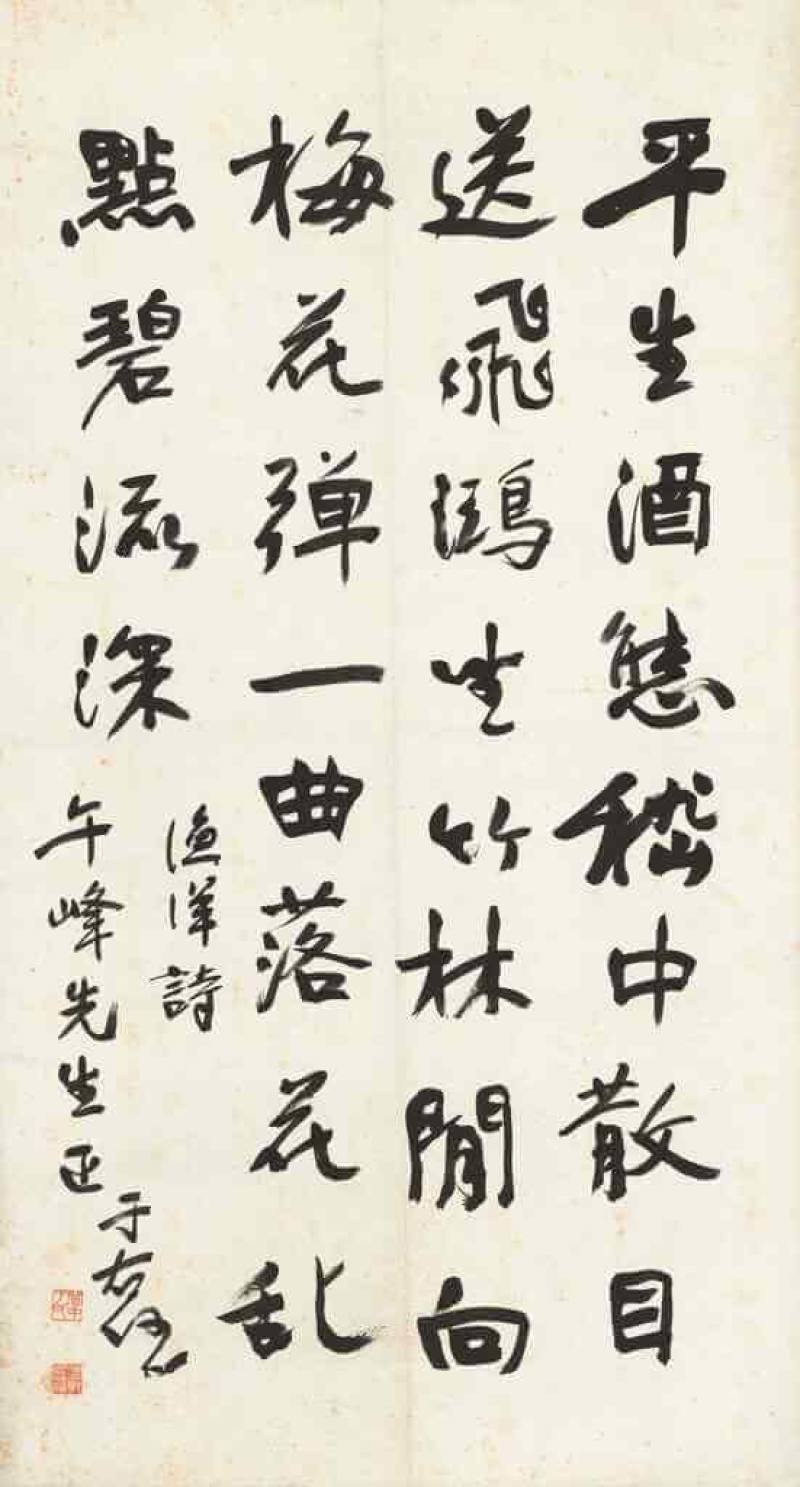 平生酒態嵇中散目
送飛鴻坐竹林閒向
梅花弹一曲落花乱
點碧流深
漁洋詩
午峰先生正
于右任